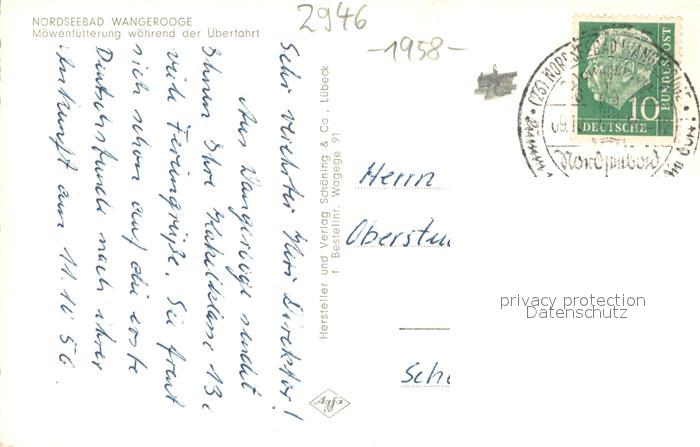 NORDSEEBAD WANGEROOGE
Möwenfütterung während der Überfahrt
2946
-1958-
Sehr verehrter Herr Direktor!
Aus Wangerooge sendet
Ihnen Ihre Kakelklasse 13c
viele Feriengrüße. Sie freut
sich schon auf die erste
Deutschstunde nach ihrer
Ankunft am 11.10 56.
Hersteller und Verlag Schöning & Co., Lübeck
1 Bestellnr. Wagege 91
Agfa
Herrn
Oberstu
Sch
10
DEUTSCHE
BUNDESPOST
(23) NORDSEEBAD WANGEROOGE
09.1
Nordseebad
privacy protection
Datenschutz